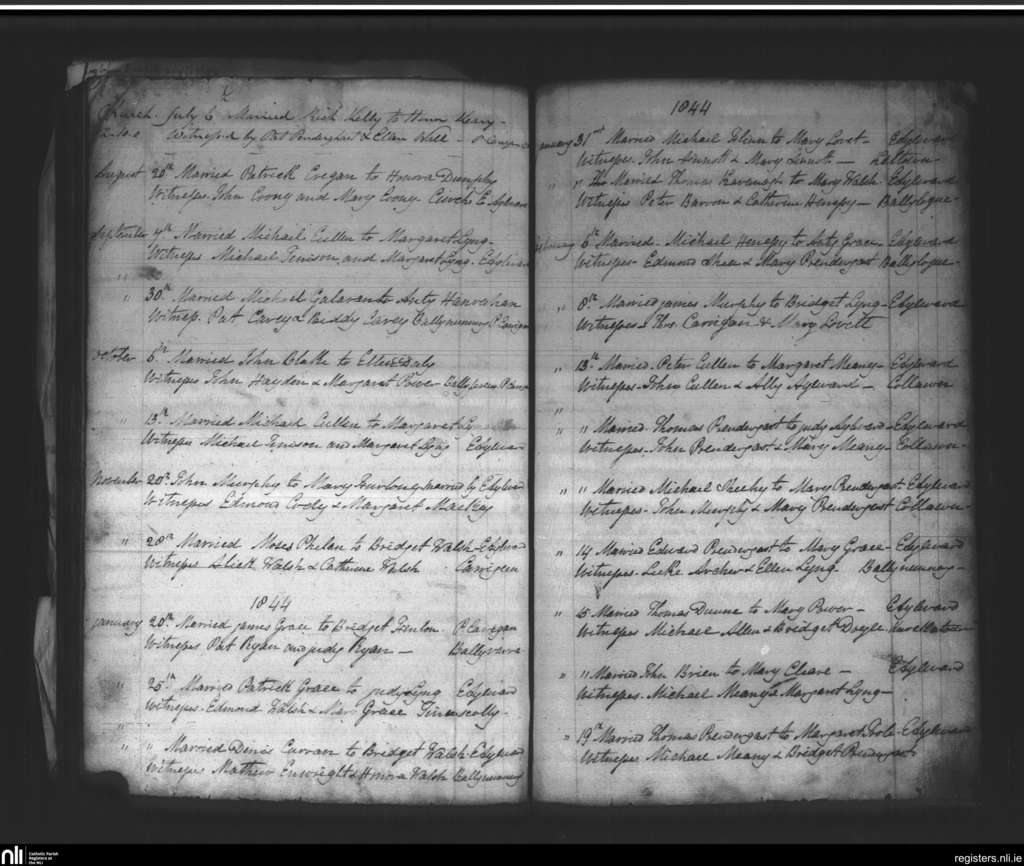 Church July 6 Married Rich Kelly to Honor
Witnessed by Pat Prendergast & Ellen
August 20th Married Patrick Cregan to Honora Dunphy
Witnesses John Coony and Mary Coony E Aylward
September 4th Married Michael Cullen to Margaret Lyng
Witness Michael Tinison and Margaret Lyng. Edylward
" "
" 30th Married Michael Galavan to Anty Hanrahan
Witness. Pat Carey & Biddy Carey P Carrigan
October 6th Married John Blake to Ellen Daly
Witnesses John Hayden & Margaret Power
" 13th Married Michael Cullen to Margaret Ly
Witnesses Michael Tinison and Margaret Lyng Edylwar
November 20th John Murphy to Mary Furlong married by Edylward
Witnesses Edmond Cody & Margaret Mackey
" 28th Married Moses Phelan to Bridget Walsh Edylward
Witnesses Walsh & Catherine Walsh Carrigeen
1844
January 20th Married James Grace to Bridget Fenlon. P Carigan
Witnesses Pat Ryan and Judy Ryan — Ballyvarra
" 25th Married Patrick Grace to Judy Lyng Edylward
Witnesses. Edmond Walsh & Mary Grace
" "
" " Married Denis Curran to Bridget Walsh Edylward
Witnesses Mathew Enwright & Honora Walsh
1844
January 31st Married Michael Glinn to Mary Lovet - Edylward
Witnesses John Sinnott & Mary Sinnott —
" " Married Thomas Kavenagh to Mary Walsh Edylward
Witnesses Peter Barron & Catherine Henessy — Ballylogue
February 6th Married - Michael Henessy to Anty Grace Edylward
Witnesses - Edmond Shea & Mary Prendergast Ballylogue -
" 8th Married James Murphy to Bridget Lyng - Edylward
Witnesses Thos. Carrigan & Mary Lovett
" 13th Married Peter Cullen to Margaret Meany - Edylward
Witnesses - John Cullen & Ally Aylward — Collawn
" " Married Thomas Prendergast to Judy Aylward Edylward
Witnesses. John Prendergast & Mary Meany - Collawn
" " Married Michael Sheehy to Mary Prendergast Edylward
Witnesses - John Murphy & Mary Prendergast Collawn -
" 14 Married Edward Prendergast to Mary Grace - Edylward
Witnesses. Luke Archer & Ellen Lyng
" 15 Married Thomas Dunne to Mary Power - Edylward
Witnesses Michael Allen & Bridget Doyle
" " Married John Brien to Mary Cleare — Edylward
Witnesses. Michael Meany & Margaret Lyng —
" 19th Married Thomas Prendergast to Margaret Edylward
Witnesses Michael Meany & Bridget Prendergast
nli
Catholic Parish
Registers at
the NLI
registers.nli.ie